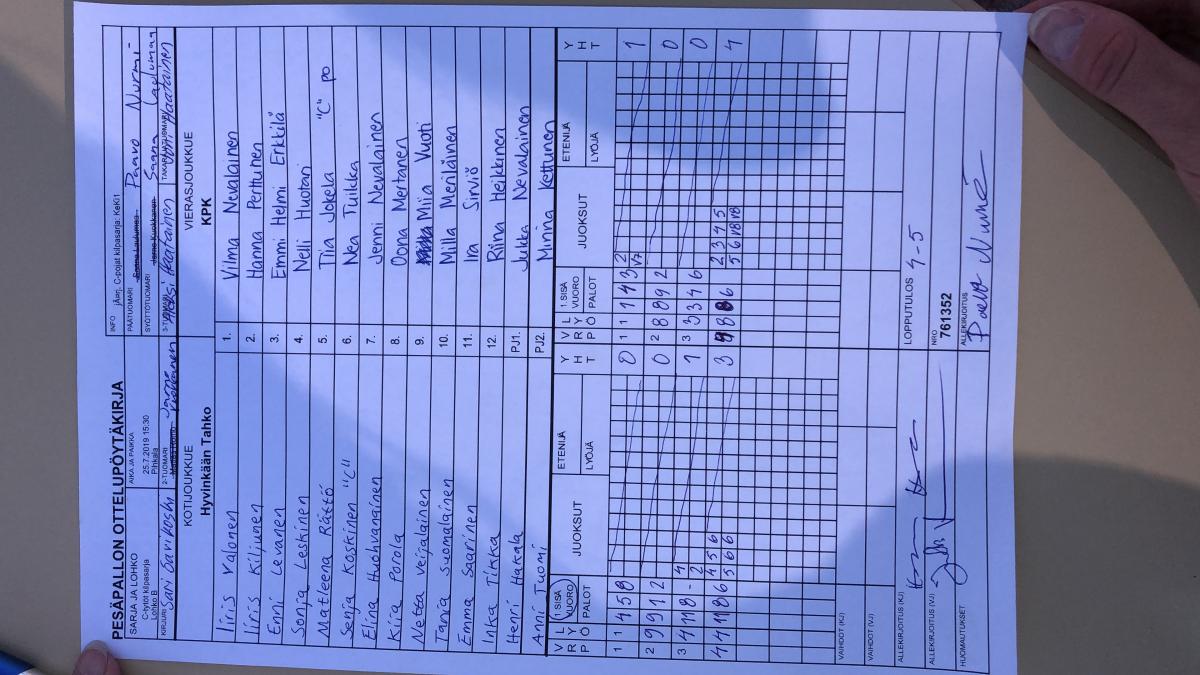 PESÄPALLON OTTELUPÖYTÄKIRJA
INFO jÄarj. C-pojat kilpasarja: KeKi1
SARJA JA LOHKO
C-tytöt kilpasarja
Lohko B
AIKA JA PAIKKA
25.7.2019 15:30
Pihkala
PÄÄTUOMARI Paavo Nurmi
SYÖTTÖTUOMARI Sanna Laulumaa
KIRJURI Sari Savikoski
2-TUOMARI Jarno
3-TUOMARI Aleksi Haatainen
TAKARAJATUOMARI Joni Haatainen
KOTIJOUKKUE
Hyvinkään Tahko
VIERASJOUKKUE
KPK
Iiris Valonen 1. Vilma Nevalainen
Iiris Kiljunen 2. Hanna Perttunen
Enni Levanen 3. Emmi Helmi Erkkilä
Sonja Leskinen 4. Nelli Huotari
Matleena Rättö 5. Tiia Jokela "C" po
Senja Koskinen "C" 6. Nea Tuikka
Elina Huohvanainen 7. Jenni Nevalainen
Kiia Porola 8. Oona Mertanen
Netta Veijalainen 9. Miia Vuoti
Tania Suomalainen 10. Milla Meriläinen
Emma Saarinen 11. Ira Sirviö
Inka Tikka 12. Riina Heikkinen
Henri Hakala PJ1. Jukka Nevalainen
Anni Tuomi PJ2. Minna Kettunen
V R Ö L Y P 1.SISÄ VUORO PALOT JUOKSUT ETENIJÄ LYÖJÄ Y H T
V R Ö L Y P 1.SISÄ VUORO PALOT JUOKSUT ETENIJÄ LYÖJÄ Y H T
1 1 4 5 8 0
1 1 1 4 3 2 1
2 9 9 1 2 0
2 8 8 9 2 0
3 4 11 8 - 4 2 1
3 3 3 4 6 0
4 4 11 8 6 4 5 6 5 6 6 3
8 6 2 3 4 5 5 6 4
VAIHDOT (KJ)
VAIHDOT (VJ)
ALLEKIRJOITUS (KJ)
LOPPUTULOS 4-5
ALLEKIRJOITUS (VJ)
NRO
761352
HUOMAUTUKSET
ALLEKIRJOITUS